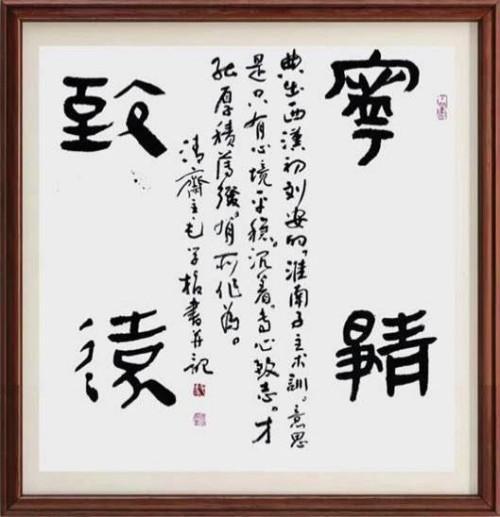 寧靜
典出西漢初刘安的，淮南子主术訓。意思
是只有心境平穩。沉着，专心致志。才
能厚積薄發。有所作為。
清齋主毛学書并記
致遠